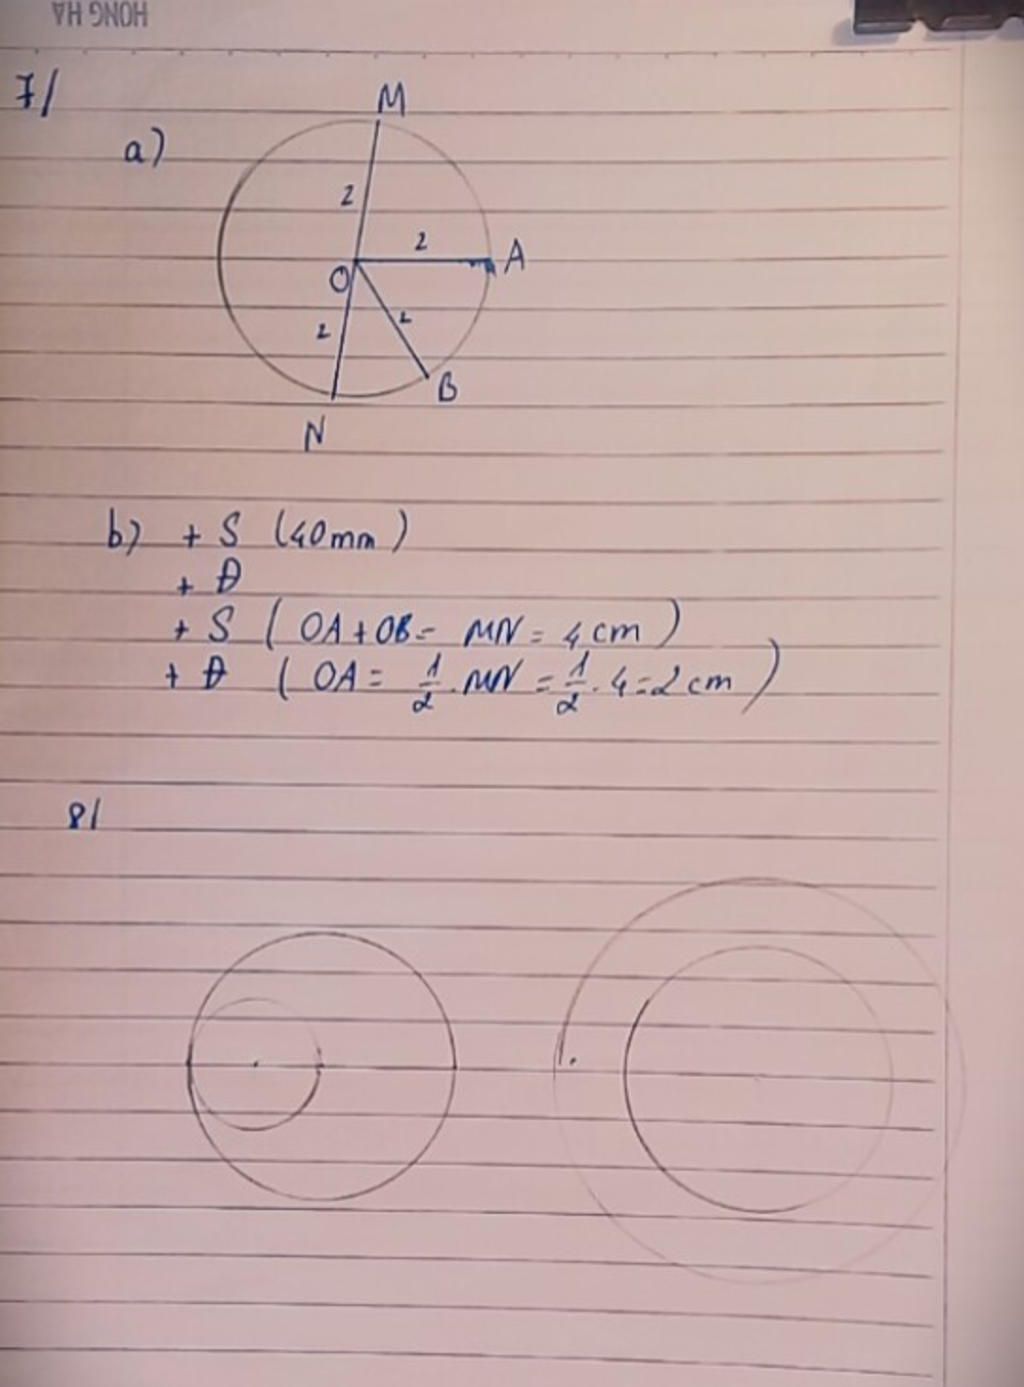 HONG HA
7/
a)
M
2
2
A
O
2
2
B
N
b) + S (40mm)
+ Đ
+ S ( OA + OB = MN = 4 cm )
+ Đ ( OA = 1/2 . MN = 1/2 . 4 = 2 cm )
8/